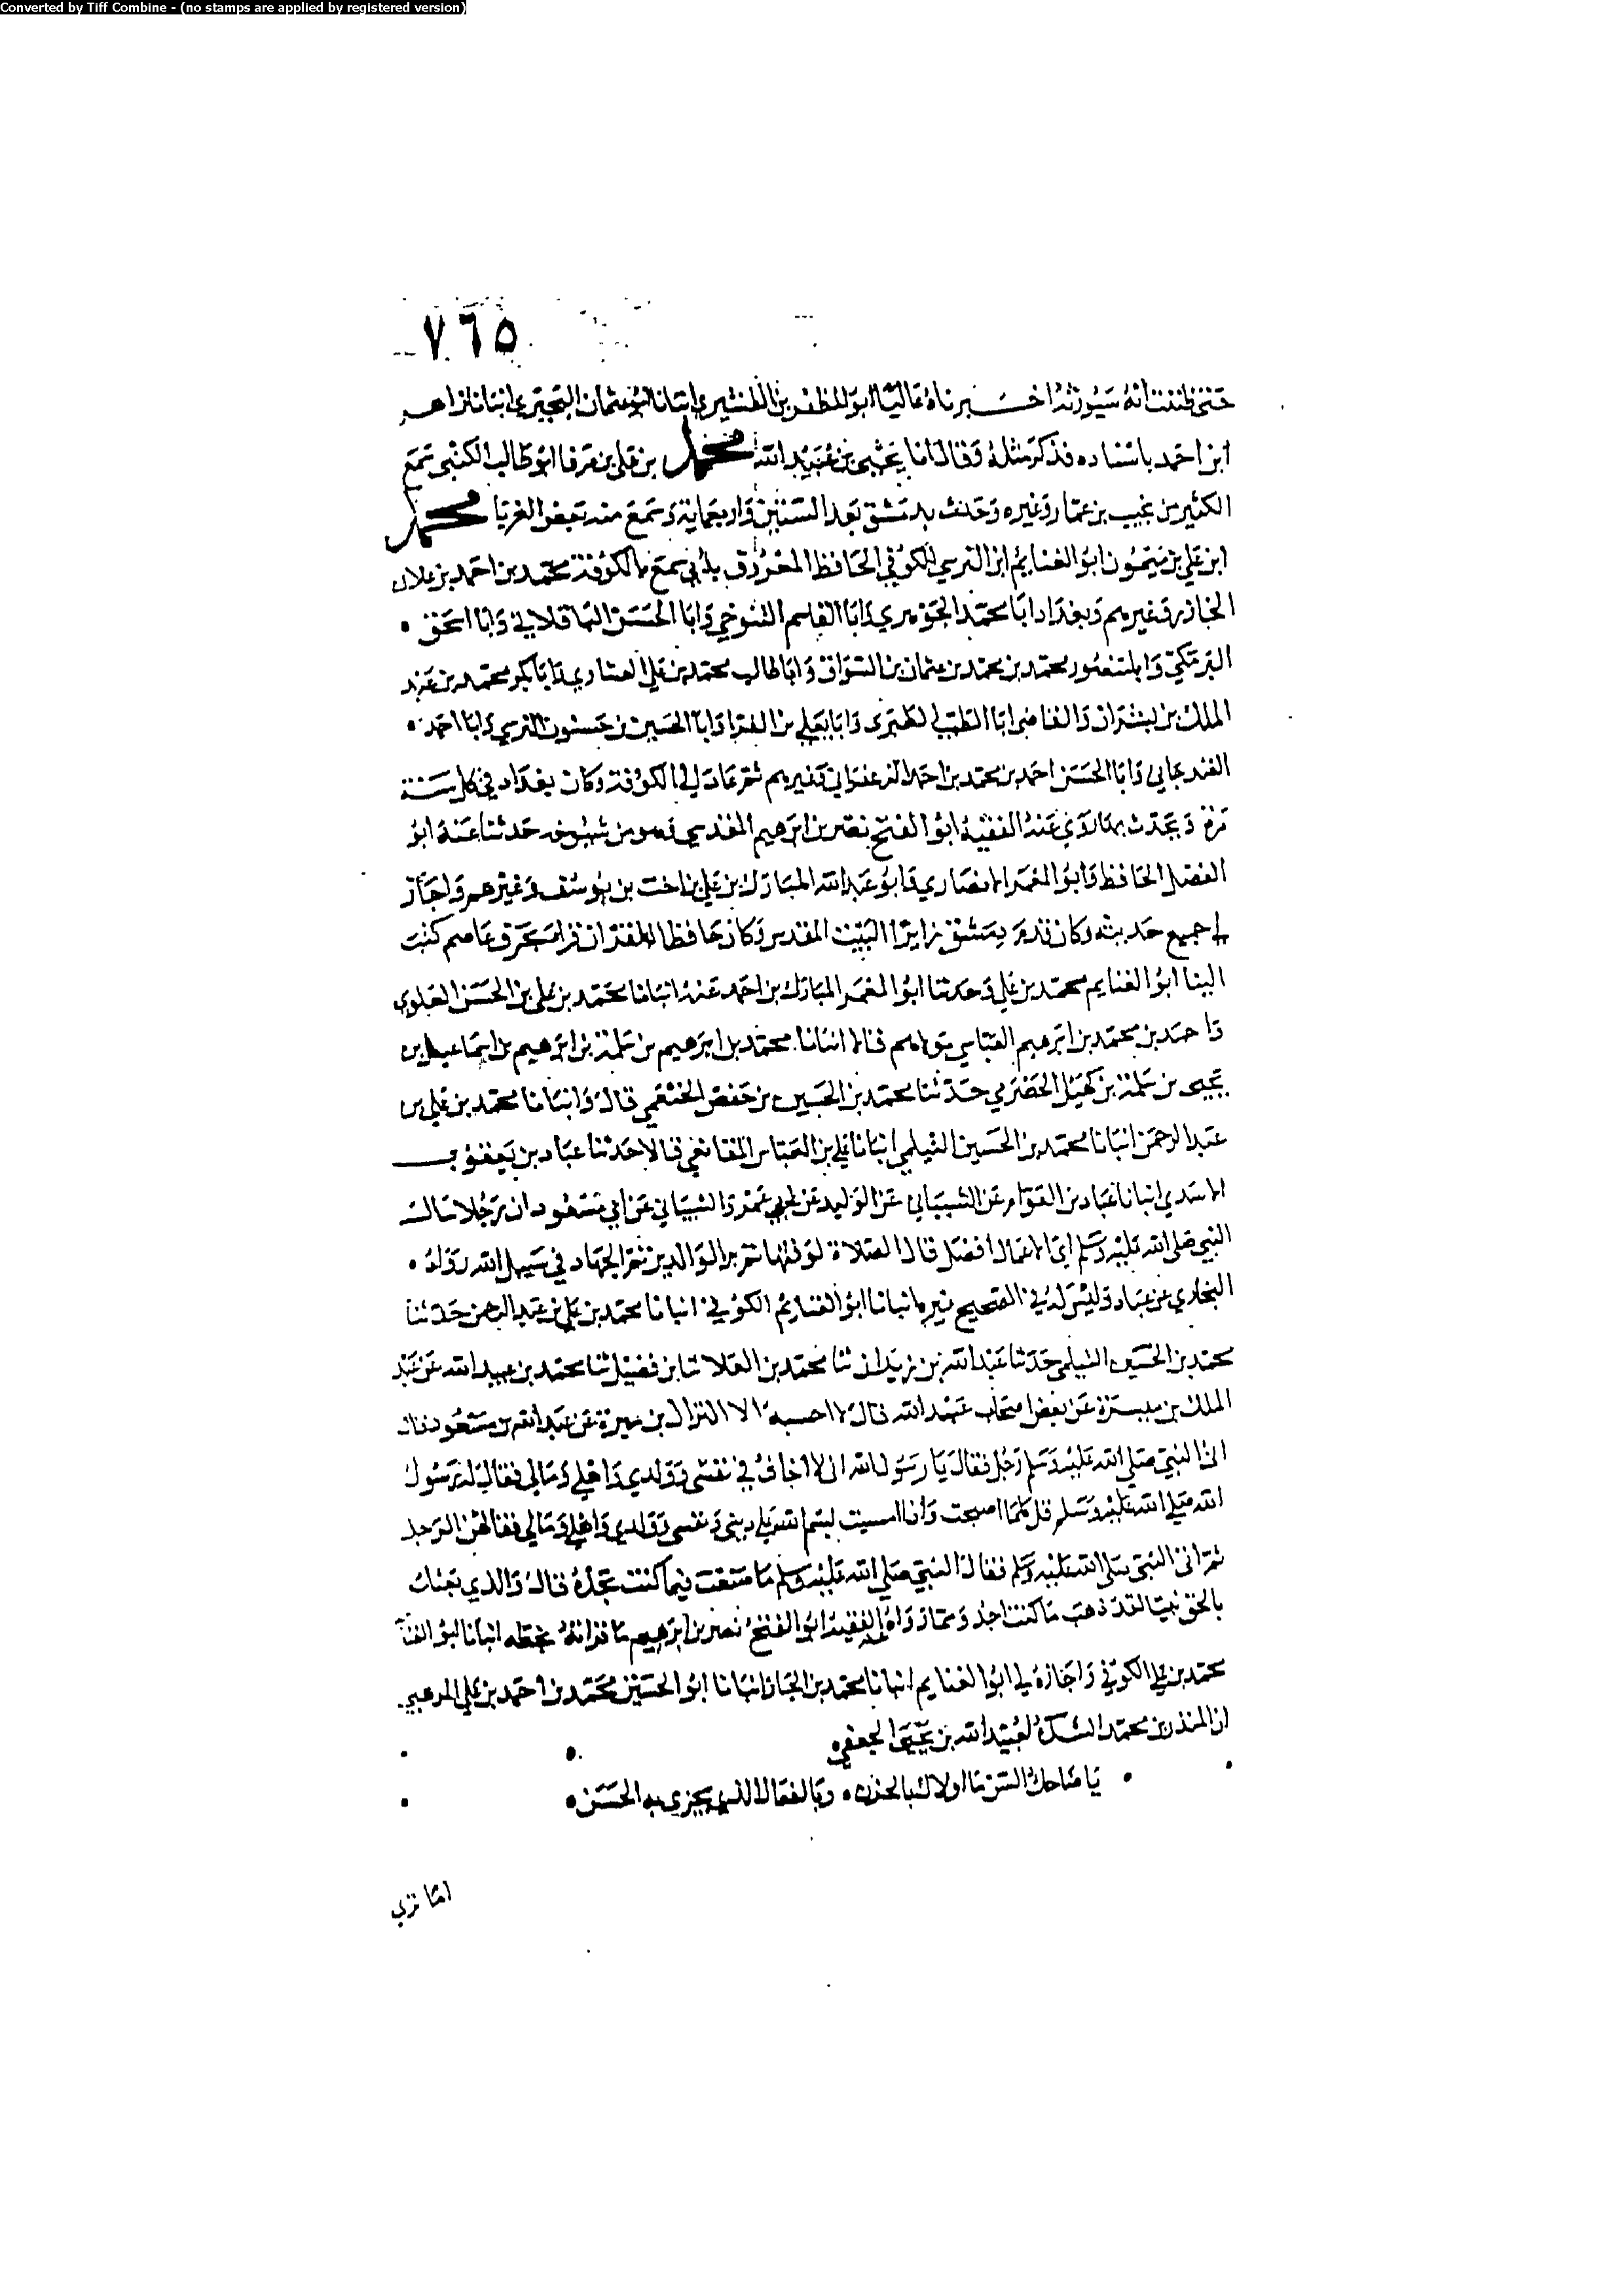 Converted by Tiff Combine - (no stamps are applied by registered version)
٧٦٥
حتى ظننت انه سيورثه اخبرناه عاليا ابو المظفر بن القشيري انبانا ابو عثمان البحيري انبانا زاهر
ابن احمد باسناده فذكر مثله وقال انا يحيى بن عبيد الله محمد بن علي بن ابو طالب سمع
الكثير من بن عمار وغيره وحدث بدمشق بعد الستين واربعماية وسمع منه بعض الغربا محمد
ابن علي بن ميمون ابو الغنايم ابن النرسي الكوفي الحافظ المعروف بأبي سمع بالكوفة محمد بن احمد بن علان
الخازن وغيرهم وبغداد ابا محمد الجوهري وابا القاسم التنوخي وابا الحسن الباقلاني وابا اسحق
البرمكي وابا منصور محمد بن محمد بن عثمان بن السواق وابا طالب محمد بن علي العشاري وابا بكر محمد بن عبد
الملك بن بشران والقاضي ابا الطيب الطبري وابا يعلى بن الفرا وابا الحسين بن حسنون النرسي وابا احمد
الغندجاني وابا الحسن احمد بن محمد بن احمد الزعفراني وغيرهم ثم عاد الى الكوفة وكان بغداد في كل سنة
مرة ويحدث بها روى عنه الفقيه ابو الفتح نصر بن ابرهيم المقدسي وهو من شيوخه حدثنا عنه ابو
الفضل الحافظ وابو المعمر الانصاري وابو عبد الله المبارك بن علي بن اخت بن يوسف وغيرهم واجاز
لي جميع حديثه وكان قدم دمشق زايرا البيت المقدس وكان حافظا للقران قرا بحرف عاصم كتب
الينا ابو الغنايم محمد بن علي وحدثنا ابو المعمر المبارك بن احمد عنه انبانا محمد بن علي بن الحسن العلوي
واحمد بن محمد بن ابرهيم العباسي مولاهم قالا انبانا محمد بن ابرهيم بن سلمة بن ابرهيم بن اسماعيل بن
يحيى بن سلمة بن كهيل الحضرمي حدثنا محمد بن الحسين بن حفص الخثعمي قال وانبانا محمد بن علي بن
عبد الرحمن انبانا محمد بن الحسين التيملي انبانا علي بن العباس المقانعي قالا حدثنا عباد بن يعقوب
الاسدي انبانا عباد بن العوام عن الشيباني عن الوليد عن ابي عمرو الشيباني عن ابي مسعود ان رجلا سال
النبي صلى الله عليه وسلم اي الاعمال افضل قال الصلاة لوقتها ثم بر الوالدين ثم الجهاد في سبيل الله رواه
البخاري عن عباد وليس له في الصحيح غيره انبانا ابو الغنايم الكوفي انبانا محمد بن علي بن عبد الرحمن حدثنا
محمد بن الحسين التيملي حدثنا عبد الله بن زيدان ثنا محمد بن العلا ثنا بن فضيل ثنا محمد بن عبيد الله عن عبد
الملك بن ميسرة عن بعض اصحاب عبد الله قال لا احسبه الا النزال بن سبرة عن عبد الله بن مسعود قال
اتى النبي صلى الله عليه وسلم رجل فقال يا رسول الله اني لاخاف في نفسي وولدي واهلي ومالي فقال له رسول
الله صلى الله عليه وسلم قل كلما اصبحت واذا امسيت بسم الله على ديني ونفسي وولدي واهلي ومالي فقالهن الرجل
ثم اتى النبي صلى الله عليه وسلم فقال النبي صلى الله عليه وسلم ما صنعت فيما كنت تجده قال والذي بعثك
بالحق نبيا لقد ذهب ما كنت اجد ومما رواه الفقيه ابو الفتح نصر بن ابرهيم ما قراته بخطه انبانا ابو الغنا
محمد بن علي الكوفي واجازه لي ابو الغنايم انبانا محمد بن انبانا ابو الحسين محمد بن احمد بن علي
ان المنذر بن محمد انشده لعبيد الله بن يحيى الجعفي
يا ضاحك السن ما اولاك بالحزن وبالفعال الذي يجزى به الحسن
اما ترى